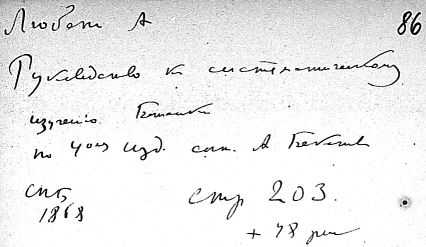 Любен А 86
Руководство к систематическому
изучению Ботаники
по 4ому изд. сост. А Бекетов
СПБ
1868 стр 203.
+ 48 рис